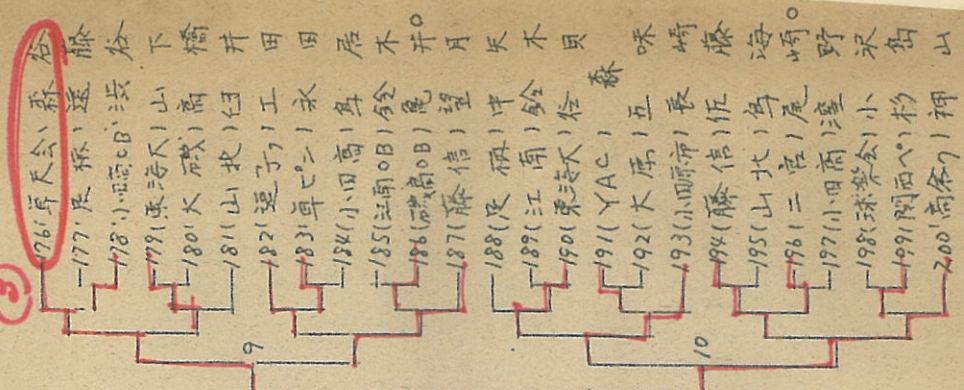 176(昇天会)森谷
177(足柄)遠藤
178(小商OB)渋谷
179(東海大)山下
180(大磯)高橋
181(山北)臼井
182(逗子ク)工田
183(卓ピン)永田
184(小田高)鳥居
185(江南OB)鈴木
186(磯高OB)亀井
187(藤信)望月
188(足柄)中矢
189(江南)鈴木
190(東海大)
191(YAC)森
192(大原)五味
193(小田原市)長崎
194(藤信)佐藤
195(山北)鳥海
196(二宮)尾崎
197(小田商)
198(球楽会)小沢
199(関西ペ)杉島
200(高余ク)神山
9
10
3